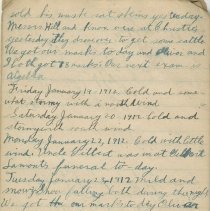 sold his musk rat skins yesterday.
Messrs Hill and Knox were at Christie
yesterday. They drove up to get some cattle
We got our marks to day and Oliver and
I both got 78 marks. Our next exam is
Algebra
Friday January 19, 1912. Cold and some
what stormy with a north wind
Saturday January 20 1912 Cold and
stormy with south wind
Monday January 22, 1912. Cold with little
wind. Uncle Wilbert was in at
funeral to-day.
Tuesday January 23 1912 Mild and
snowy. Snow falling both during the night
We got the our marks to day Oliver